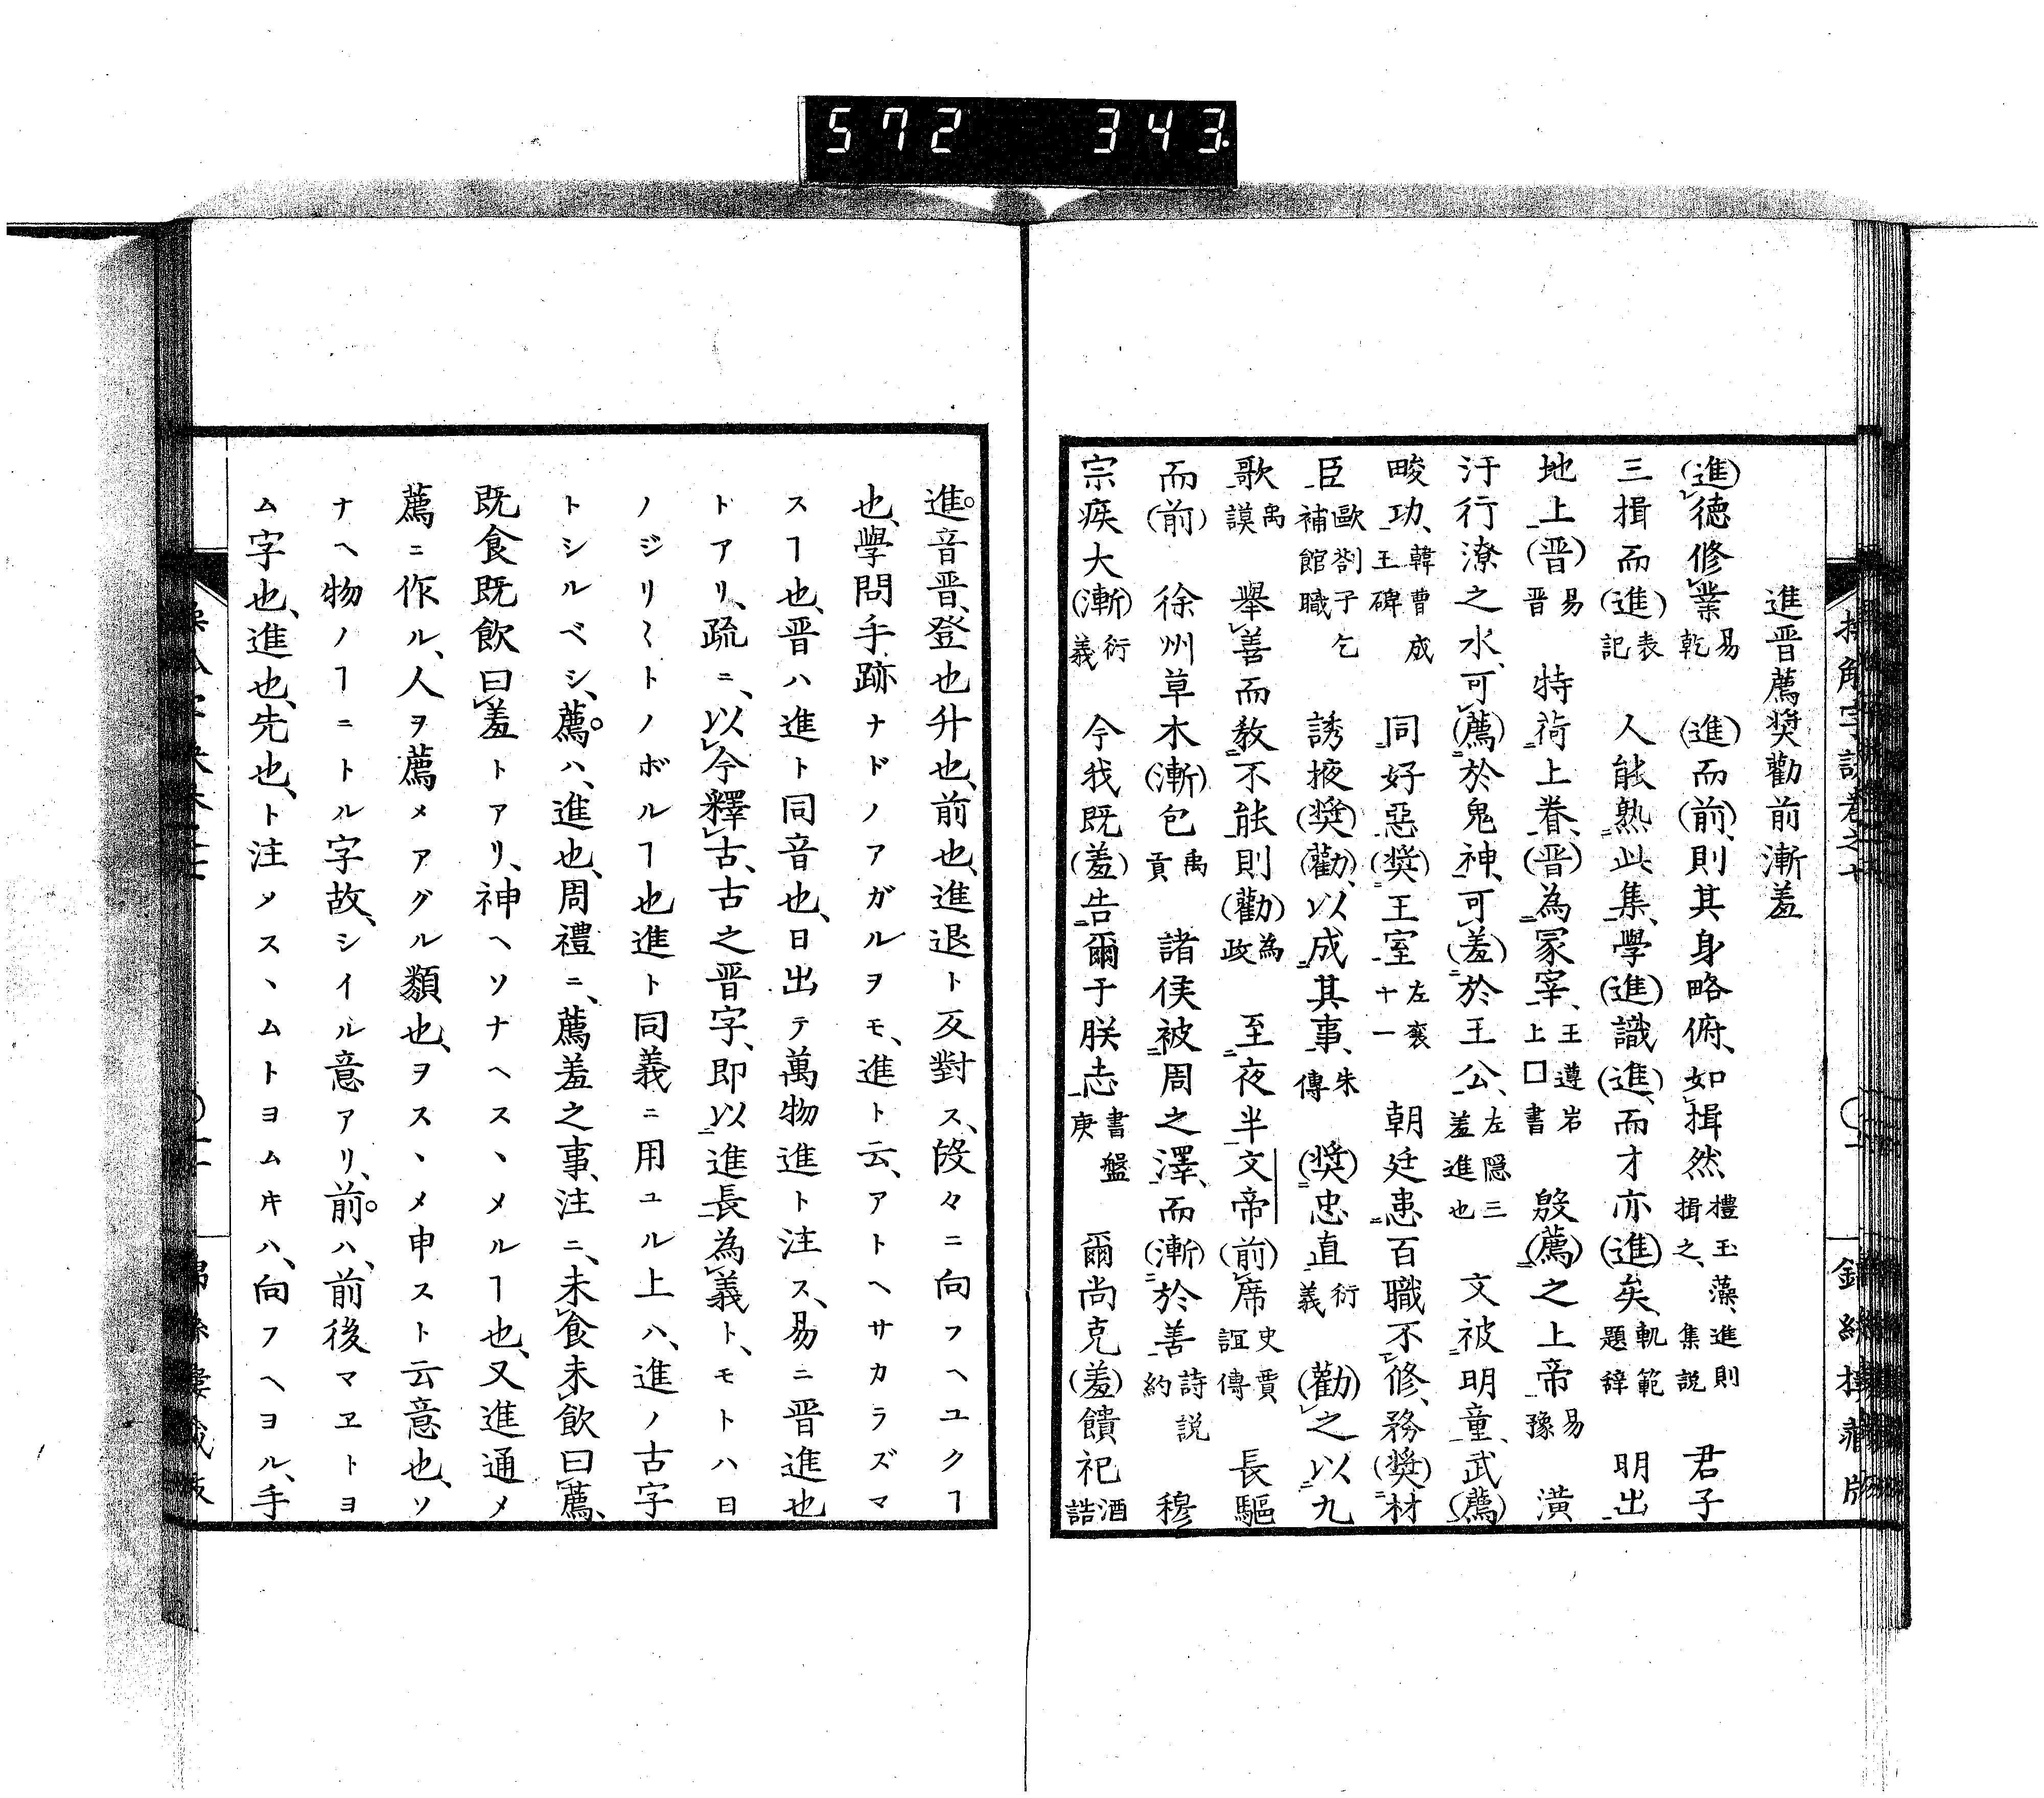 572 343
進晋薦奨勸前漸羞
(進)徳修業易乾 (進)而(前)、則其身略俯、如揖然禮玉藻、進則揖之、集説 君子
三揖而(進)表記 人能熟此集、學(進)識(進)、而才亦(進)矣、軌範題辭 明出
地上(晋)易晋 特荷上眷、(晋)為冢宰、王遵岩上口書 殷(薦)之上帝易豫 潢
汙行潦之水、可(薦)於鬼神、可(羞)於王公、左隠三羞進也 文被明童、武(薦)
畯功、韓曹成王碑 同好惡(奨)王室左襄十一 朝廷患百職不修、務(奨)材
臣歐劄子乞補館職 誘掖(奨)(勸)、以成其事、朱傳 (奨)忠直衍義 (勸)之以九
歌禹謨 舉善而教不能則(勸)為政 至夜半文帝(前)席史賈誼傳 長驅
而(前) 徐州草木(漸)包禹貢 諸侯被周之澤、而(漸)於善詩説約 穆
宗疾大(漸)衍義 今我既(羞)告爾于朕志書盤庚 爾尚克(羞)饋祀酒誥
進。音晋、登也升也、前也、進退ト反對ス、段々ニ向フヘユクヿ
也、學問手跡ナドノアガルヲモ、進ト云、アトヘサカラズマ
スヿ也、晋ハ進ト同音也、日出テ萬物進ト注ス、易ニ晋進也
ドアリ、疏ニ、以今釋古、古之晋字、即以進長為義ト、モトハ日
ノジリ〱トノボルヿ也進ト同義ニ用ユル上ハ、進ノ古字
トシルベシ、薦。ハ、進也、周禮ニ、薦羞之事、注ニ、未食未飲曰薦、
既食既飲曰羞トアリ、神ヘソナヘスヽメルヿ也、又進通メ
薦ニ作ル、人ヲ薦メアグル類也、ヲスヽメ申スト云意也、ソ
ナヘ物ノヿニトル字故、シイル意アリ、前。ハ、前後マヱトヨ
ム字也、進也、先也、ト注メスヽムトヨムキハ、向フヘヨル、手